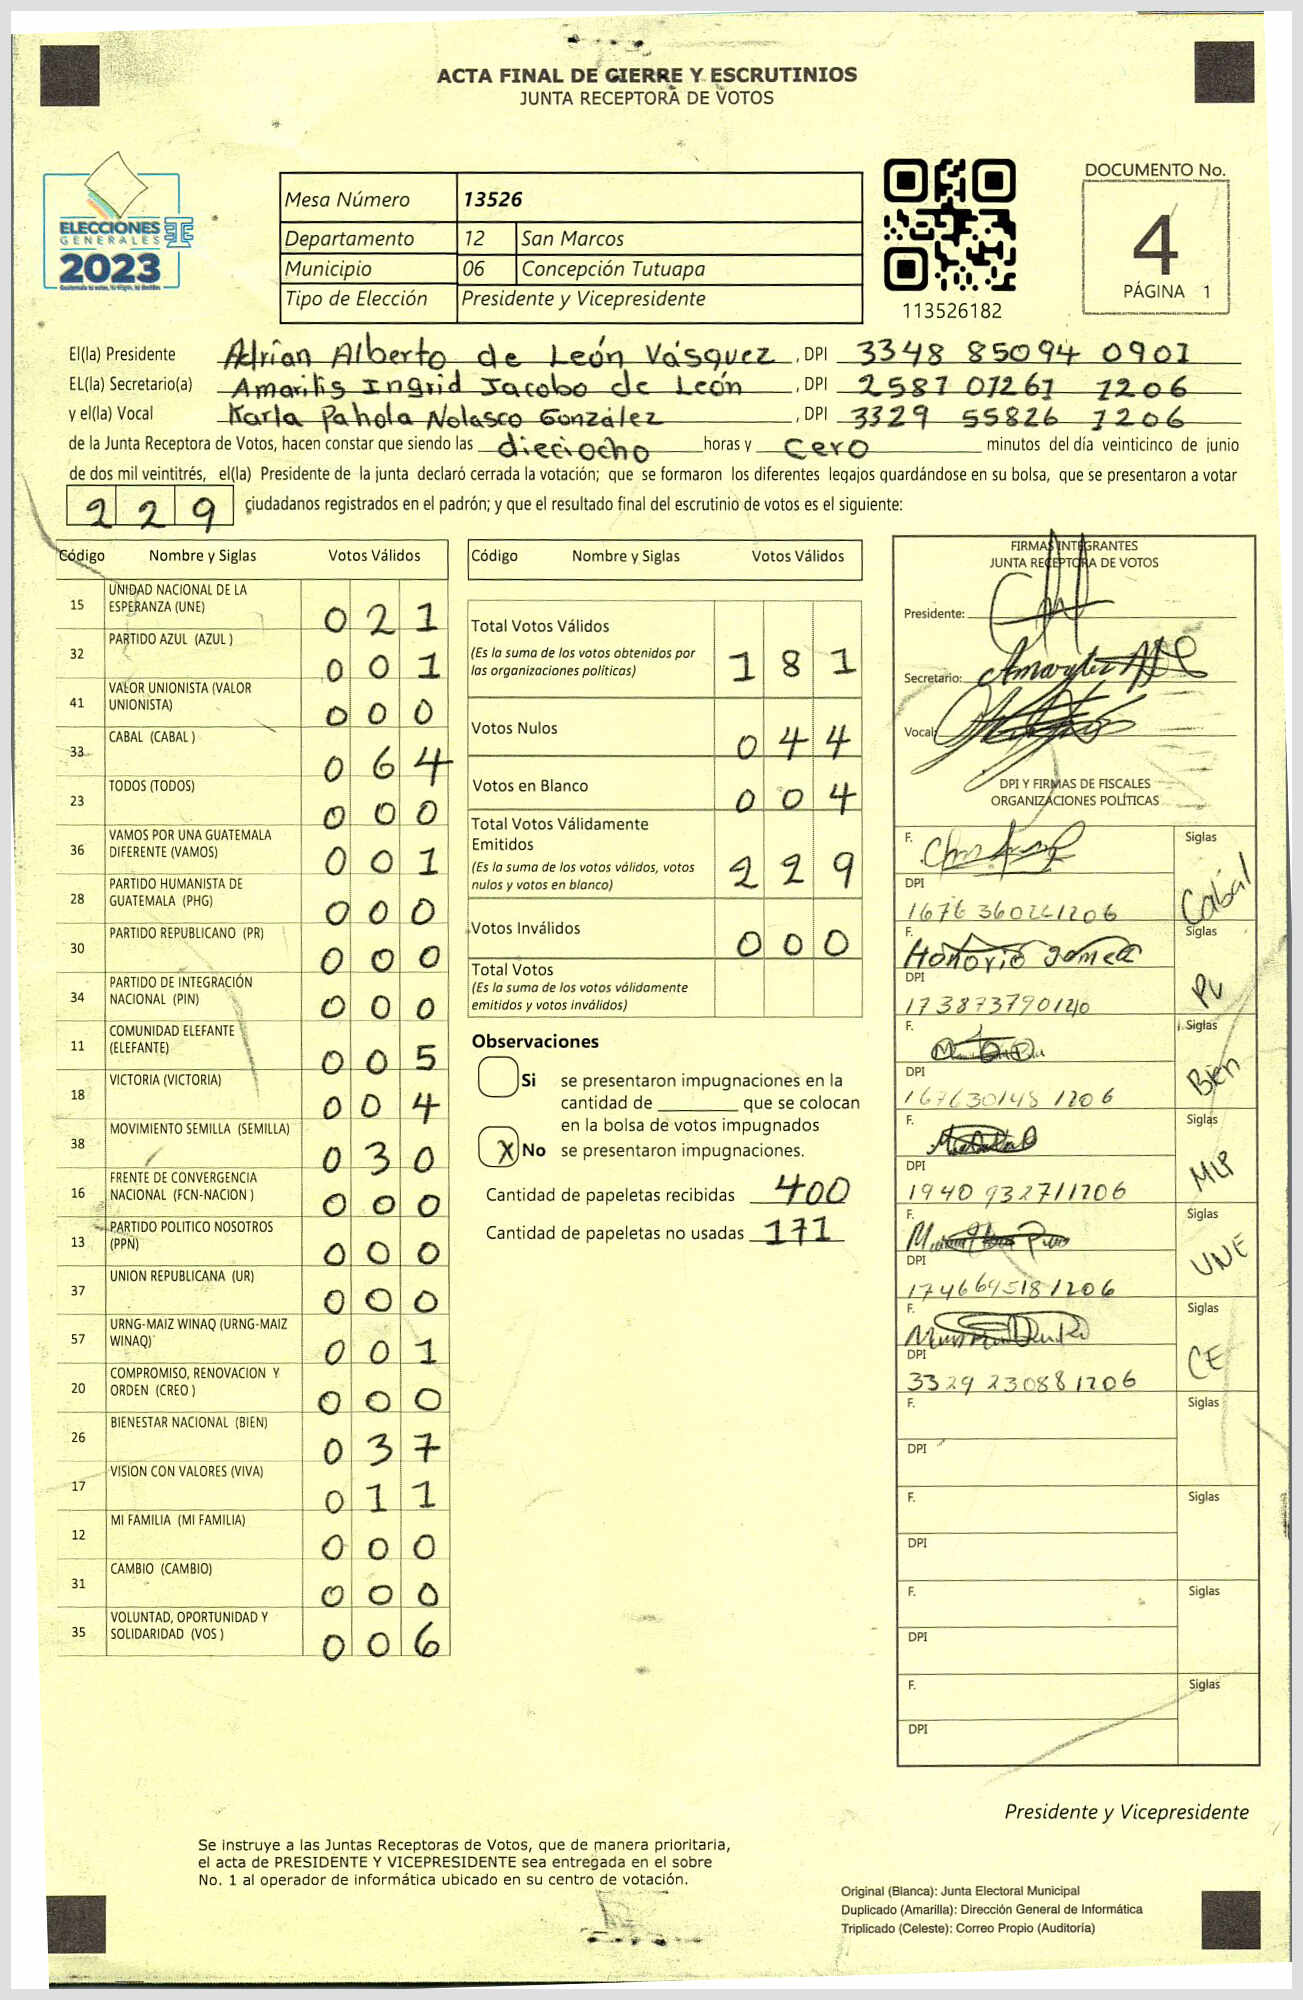 ACTA FINAL DE CIERRE Y ESCRUTINIOS
JUNTA RECEPTORA DE VOTOS
ELECCIONES
GENERALES
2023
Mesa Número 13526
Departamento 12 San Marcos
Municipio 06 Concepción Tutuapa
Tipo de Elección Presidente y Vicepresidente
113526182
DOCUMENTO No.
4
PÁGINA 1
El(la) Presidente Adrían Alberto de León Vásquez, DPI 3348 85094 0901
EL(la) Secretario(a) Amarilis Ingrid Jacobo de León, DPI 2587 07261 1206
y el(la) Vocal Karla Pahola Nolasco González, DPI 3329 55826 1206
de la Junta Receptora de Votos, hacen constar que siendo las dieciocho horas y cero minutos del día veinticinco de junio
de dos mil veintitrés, el(la) Presidente de la junta declaró cerrada la votación; que se formaron los diferentes legajos quardándose en su bolsa, que se presentaron a votar
229 ciudadanos registrados en el padrón; y que el resultado final del escrutinio de votos es el siguiente:
Código Nombre y Siglas Votos Válidos
15 UNIDAD NACIONAL DE LA ESPERANZA (UNE) 021
32 PARTIDO AZUL (AZUL ) 001
41 VALOR UNIONISTA (VALOR UNIONISTA) 000
33 CABAL (CABAL ) 064
23 TODOS (TODOS) 000
36 VAMOS POR UNA GUATEMALA DIFERENTE (VAMOS) 001
28 PARTIDO HUMANISTA DE GUATEMALA (PHG) 000
30 PARTIDO REPUBLICANO (PR) 000
34 PARTIDO DE INTEGRACIÓN NACIONAL (PIN) 000
11 COMUNIDAD ELEFANTE (ELEFANTE) 005
18 VICTORIA (VICTORIA) 004
38 MOVIMIENTO SEMILLA (SEMILLA) 030
16 FRENTE DE CONVERGENCIA NACIONAL (FCN-NACION ) 000
13 PARTIDO POLITICO NOSOTROS (PPN) 000
37 UNION REPUBLICANA (UR) 000
57 URNG-MAIZ WINAQ (URNG-MAIZ WINAQ) 001
20 COMPROMISO, RENOVACION Y ORDEN (CREO ) 000
26 BIENESTAR NACIONAL (BIEN) 037
17 VISION CON VALORES (VIVA) 011
12 MI FAMILIA (MI FAMILIA) 000
31 CAMBIO (CAMBIO) 000
35 VOLUNTAD, OPORTUNIDAD Y SOLIDARIDAD (VOS ) 006
Código Nombre y Siglas Votos Válidos
Total Votos Válidos
(Es la suma de los votos obtenidos por
las organizaciones políticas) 181
Votos Nulos 044
Votos en Blanco 004
Total Votos Válidamente
Emitidos
(Es la suma de los votos válidos, votos
nulos y votos en blanco) 229
Votos Inválidos 000
Total Votos
(Es la suma de los votos válidamente
emitidos y votos inválidos)
Observaciones
Si se presentaron impugnaciones en la
cantidad de ________ que se colocan
en la bolsa de votos impugnados
X No se presentaron impugnaciones.
Cantidad de papeletas recibidas 400
Cantidad de papeletas no usadas 171
FIRMAS INTEGRANTES
JUNTA RECEPTORA DE VOTOS
Presidente:
Secretario:
Vocal:
DPI Y FIRMAS DE FISCALES
ORGANIZACIONES POLÍTICAS
F. Siglas Cabal
DPI
F. Honorio Siglas
DPI
F. Siglas Bien
DPI 167630148 1206
F. Siglas MLP
DPI 1940 932711206
F. Siglas UNE
DPI 1746645181206
F. Siglas CE
DPI 3329 23088 1206
F. Siglas
DPI
F. Siglas
DPI
F. Siglas
DPI
F. Siglas
DPI
Presidente y Vicepresidente
Se instruye a las Juntas Receptoras de Votos, que de manera prioritaria,
el acta de PRESIDENTE Y VICEPRESIDENTE sea entregada en el sobre
No. 1 al operador de informática ubicado en su centro de votación.
Original (Blanca): Junta Electoral Municipal
Duplicado (Amarilla): Dirección General de Informática
Triplicado (Celeste): Correo Propio (Auditoría)